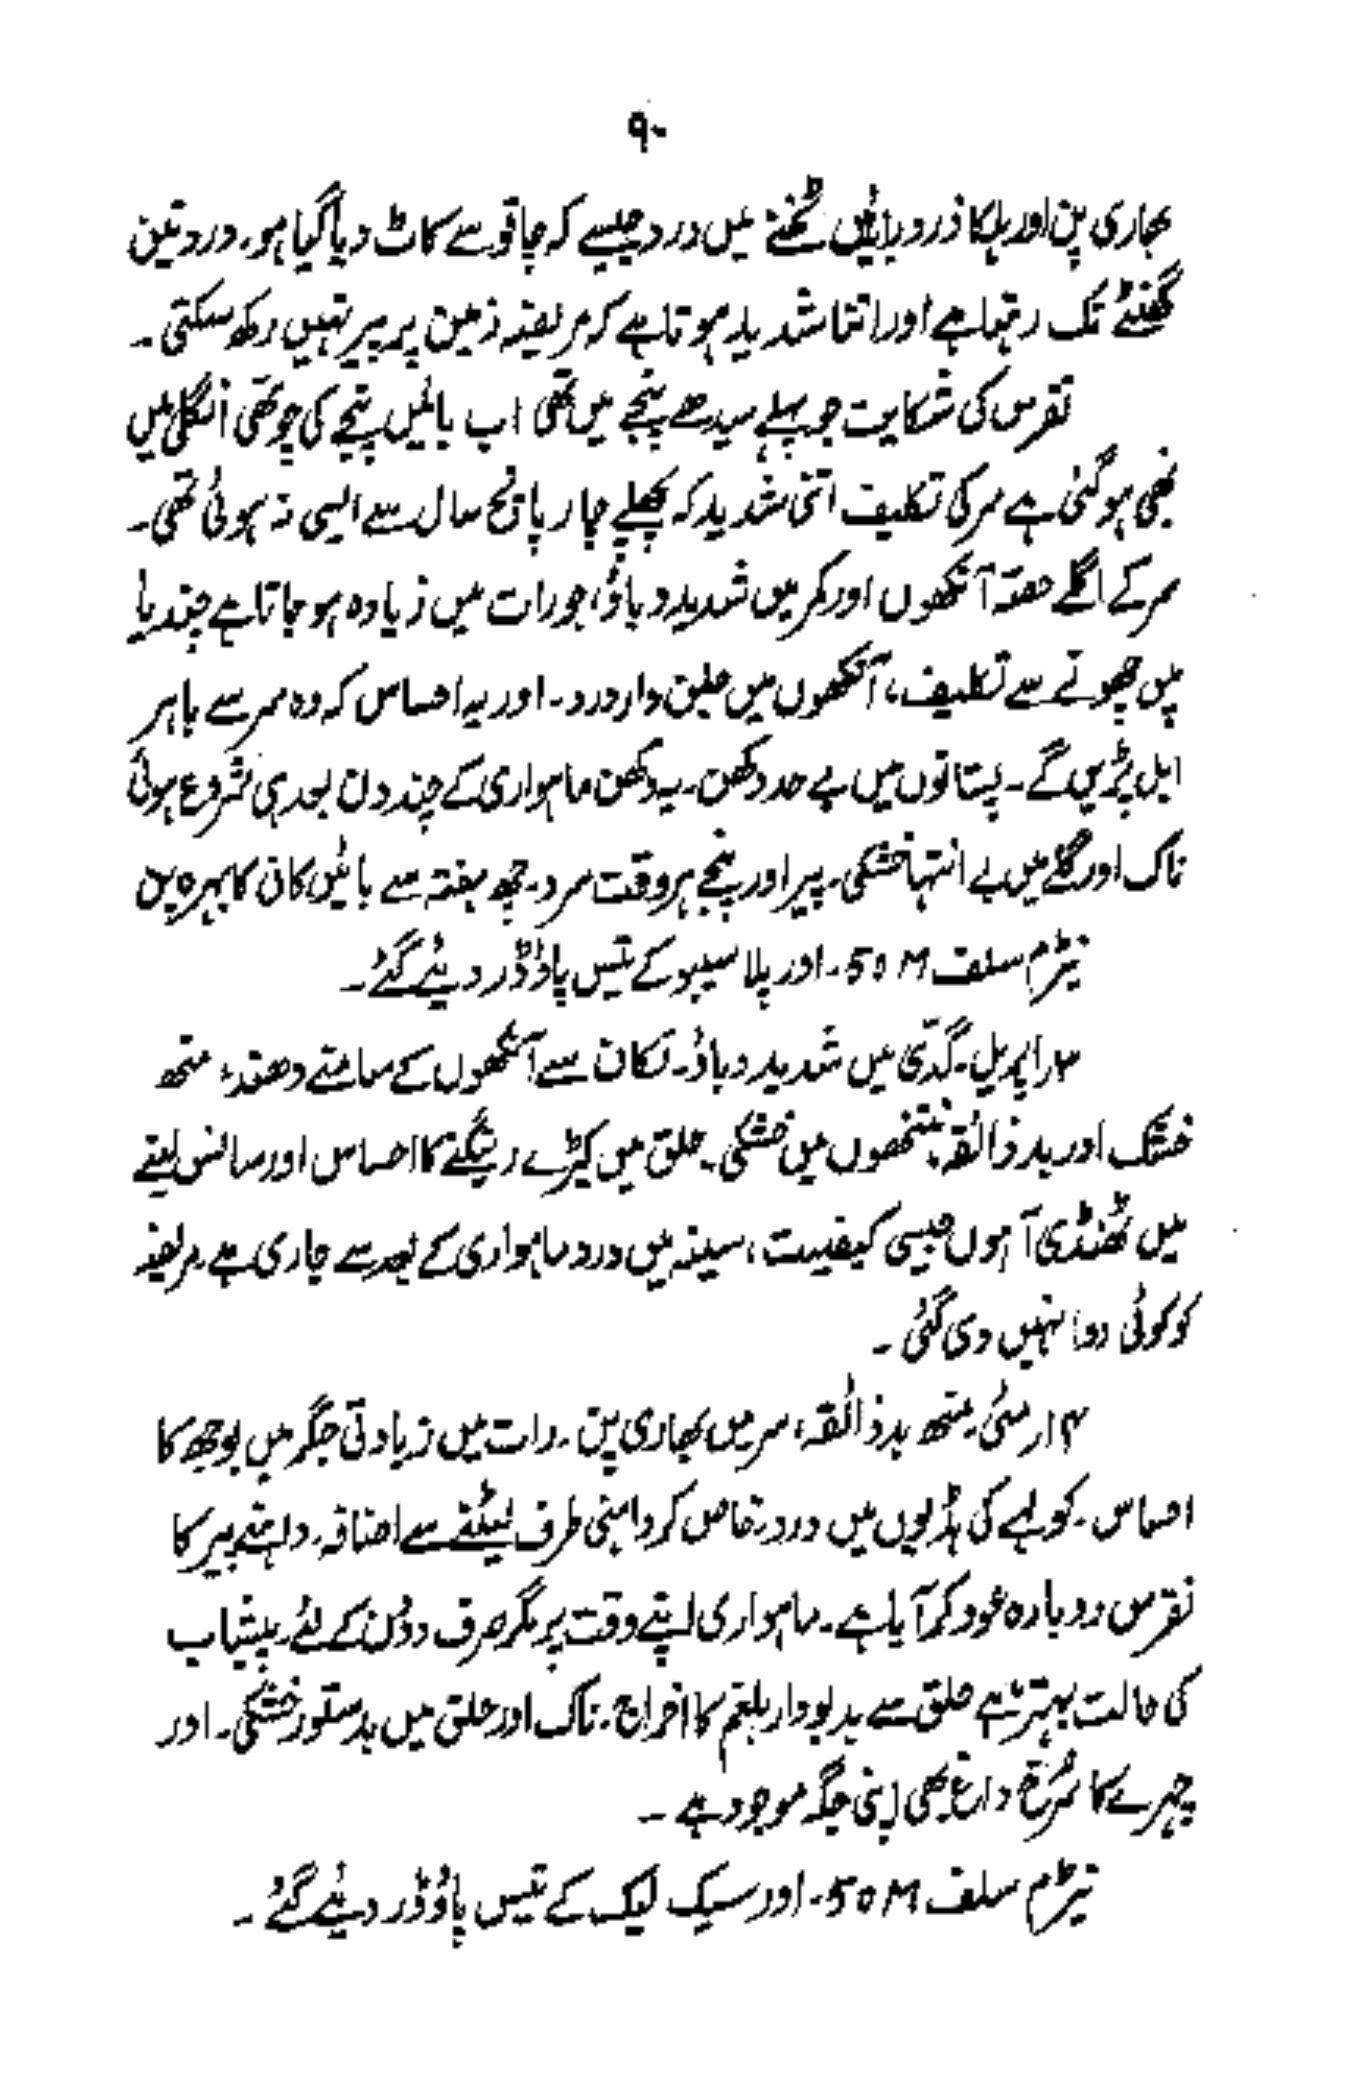 ۹۰
بھاری پن اور ہلکا زرد و بائیں ٹخنے میں درد جیسے کہ چاقو سے کاٹ دیا گیا ہو۔ درد تین
گھنٹے تک رہتا ہے اور اتنا شدید ہوتا ہے کہ مریضہ زمین پر پیر نہیں رکھ سکتی۔
نقرس کی شکایت جو پہلے سیدھے پنجے میں تھی اب بائیں پنجے کی چوتھی انگلی میں
بھی ہو گئی ہے سر کی تکلیف اتنی شدید کہ پچھلے چار پانچ سال سے ایسی نہ ہوئی تھی۔
سر کے اگلے حصہ آنکھوں اور کمر میں شدید دباؤ، جو رات میں زیادہ ہو جاتا ہے چندیا
میں چھونے سے تکلیف، آنکھوں میں جلن دار درد۔ اور یہ احساس کہ وہ سر سے باہر
ابل پڑیں گے۔ پستانوں میں بے حد دکھن۔ یہ دکھن ماہواری کے چند دن بعد ہی شروع ہوئی
ناک اور گلے میں بے انتہا خشکی۔ پیر اور پنجے ہر وقت سرد۔ چھ ہفتہ سے بائیں کان کا بہرہ پن
نیٹرم سلف 50M۔ اور پلاسیبو کے تیس پاؤڈر دیئے گئے۔
۲؍اپریل۔ گدّی میں شدید دباؤ۔ تکان سے آنکھوں کے سامنے دھند، منھ
خشک اور بدذائقہ نتھنوں میں خشکی۔ حلق میں کیڑے رینگنے کا احساس اور سانس لینے
میں ٹھنڈی آہوں جیسی کیفیت، سینہ میں درد ماہواری کے بعد سے جاری ہے۔ مریضہ
کو کوئی دوا نہیں دی گئی۔
۱۴؍مئی۔ منھ بدذائقہ، سر میں بھاری پن۔ رات میں زیادتی جگر میں بوجھ کا
احساس۔ کولہے کی ہڈیوں میں درد۔ خاص کر داہنی طرف لیٹنے سے اضافہ۔ داہنے پیر کا
نقرس دوبارہ عود کر آیا ہے۔ ماہواری اپنے وقت پر مگر صرف دو دن کے لئے۔ پیشاب
کی حالت بہتر ہے حلق سے بدبودار بلغم کا اخراج۔ ناک اور حلق میں بدستور خشکی۔ اور
چہرے کا سُرخ داغ بھی اپنی جگہ موجود ہے۔
نیٹرم سلف 50M۔ اور سیک لیک کے تیس پاؤڈر دیئے گئے۔